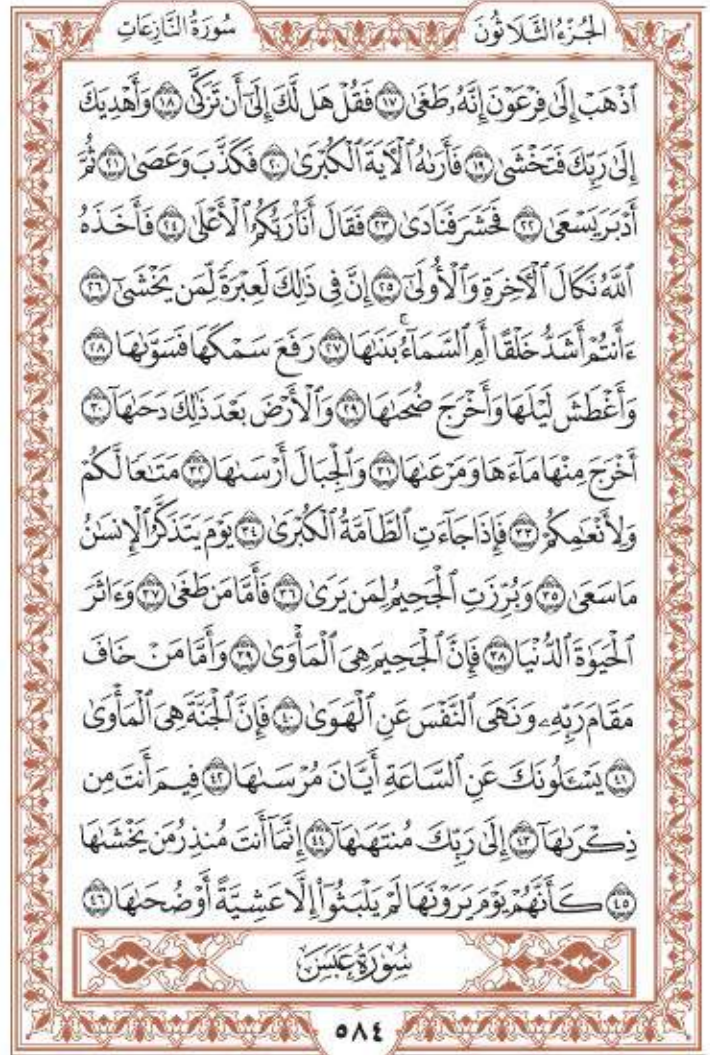 سُورَةُ النَّازِعَاتِ الجُزْءُ الثَّلَاثُونَ
ٱذْهَبْ إِلَىٰ فِرْعَوْنَ إِنَّهُۥ طَغَىٰ ١٧ فَقُلْ هَل لَّكَ إِلَىٰٓ أَن تَزَكَّىٰ ١٨ وَأَهْدِيَكَ
إِلَىٰ رَبِّكَ فَتَخْشَىٰ ١٩ فَأَرَىٰهُ ٱلْـَٔايَةَ ٱلْكُبْرَىٰ ٢٠ فَكَذَّبَ وَعَصَىٰ ٢١ ثُمَّ
أَدْبَرَ يَسْعَىٰ ٢٢ فَحَشَرَ فَنَادَىٰ ٢٣ فَقَالَ أَنَا۠ رَبُّكُمُ ٱلْأَعْلَىٰ ٢٤ فَأَخَذَهُ
ٱللَّهُ نَكَالَ ٱلْـَٔاخِرَةِ وَٱلْأُولَىٰٓ ٢٥ إِنَّ فِى ذَٰلِكَ لَعِبْرَةً لِّمَن يَخْشَىٰٓ ٢٦
ءَأَنتُمْ أَشَدُّ خَلْقًا أَمِ ٱلسَّمَآءُ ۚ بَنَىٰهَا ٢٧ رَفَعَ سَمْكَهَا فَسَوَّىٰهَا ٢٨
وَأَغْطَشَ لَيْلَهَا وَأَخْرَجَ ضُحَىٰهَا ٢٩ وَٱلْأَرْضَ بَعْدَ ذَٰلِكَ دَحَىٰهَآ ٣٠
أَخْرَجَ مِنْهَا مَآءَهَا وَمَرْعَىٰهَا ٣١ وَٱلْجِبَالَ أَرْسَىٰهَا ٣٢ مَتَـٰعًا لَّكُمْ
وَلِأَنْعَـٰمِكُمْ ٣٣ فَإِذَا جَآءَتِ ٱلطَّآمَّةُ ٱلْكُبْرَىٰ ٣٤ يَوْمَ يَتَذَكَّرُ ٱلْإِنسَـٰنُ
مَا سَعَىٰ ٣٥ وَبُرِّزَتِ ٱلْجَحِيمُ لِمَن يَرَىٰ ٣٦ فَأَمَّا مَن طَغَىٰ ٣٧ وَءَاثَرَ
ٱلْحَيَوٰةَ ٱلدُّنْيَا ٣٨ فَإِنَّ ٱلْجَحِيمَ هِىَ ٱلْمَأْوَىٰ ٣٩ وَأَمَّا مَنْ خَافَ
مَقَامَ رَبِّهِۦ وَنَهَى ٱلنَّفْسَ عَنِ ٱلْهَوَىٰ ٤٠ فَإِنَّ ٱلْجَنَّةَ هِىَ ٱلْمَأْوَىٰ
٤١ يَسْـَٔلُونَكَ عَنِ ٱلسَّاعَةِ أَيَّانَ مُرْسَىٰهَا ٤٢ فِيمَ أَنتَ مِن
ذِكْرَىٰهَآ ٤٣ إِلَىٰ رَبِّكَ مُنتَهَىٰهَآ ٤٤ إِنَّمَآ أَنتَ مُنذِرُ مَن يَخْشَىٰهَا
٤٥ كَأَنَّهُمْ يَوْمَ يَرَوْنَهَا لَمْ يَلْبَثُوٓا۟ إِلَّا عَشِيَّةً أَوْ ضُحَىٰهَا ٤٦
سُورَةُ عَبَسَ
٥٨٤